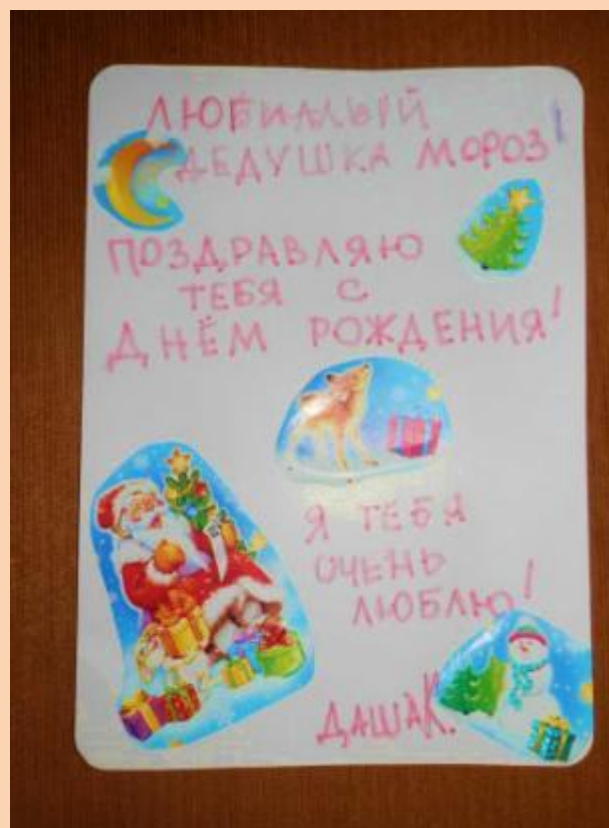 ЛЮБИМЫЙ
ДЕДУШКА МОРОЗ!
ПОЗДРАВЛЯЮ
ТЕБЯ С
ДНЁМ РОЖДЕНИЯ!
Я ТЕБЯ
ОЧЕНЬ
ЛЮБЛЮ!
ДАША К.